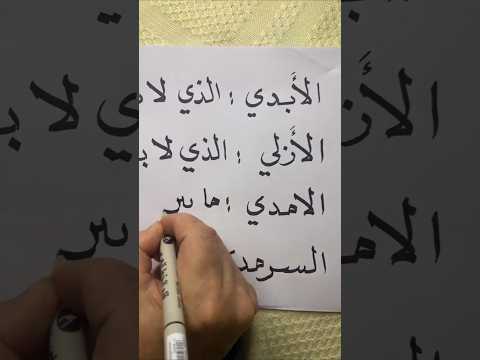 الأَبدي : الذي لا
الأَزلي : الذي لا
الامدي : ما
السرمدي